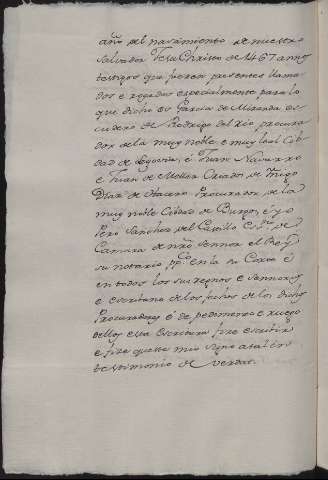 año del nasçimiento de nuestro
salvador Jesu Christo de 1467 años
testigos que fueron presentes llama
dos e rogados especialmente para lo
que dicho es Garcia de Miranda es
cudero de Rodrigo del Rio procura
dor de la muy noble e muy leal Cib
dad de Segovia, e Juan Navarro
e Juan de Criado de Iñigo
Diaz de Procurador de la
muy noble Cibdad de Burgos, é yo
Pero Sanches del Castillo Esno. de
Camara de nro. Sennor el Rey
su notario ppco. en la su Corte é
en todos los sus reynos e sennorios
e escrivano de los fechos de los dichos
Procuradores é de pedimento e ruego
dellos esta Escritura fize escribir
e fize aqueste mio signo atal en
testimonio de verdad